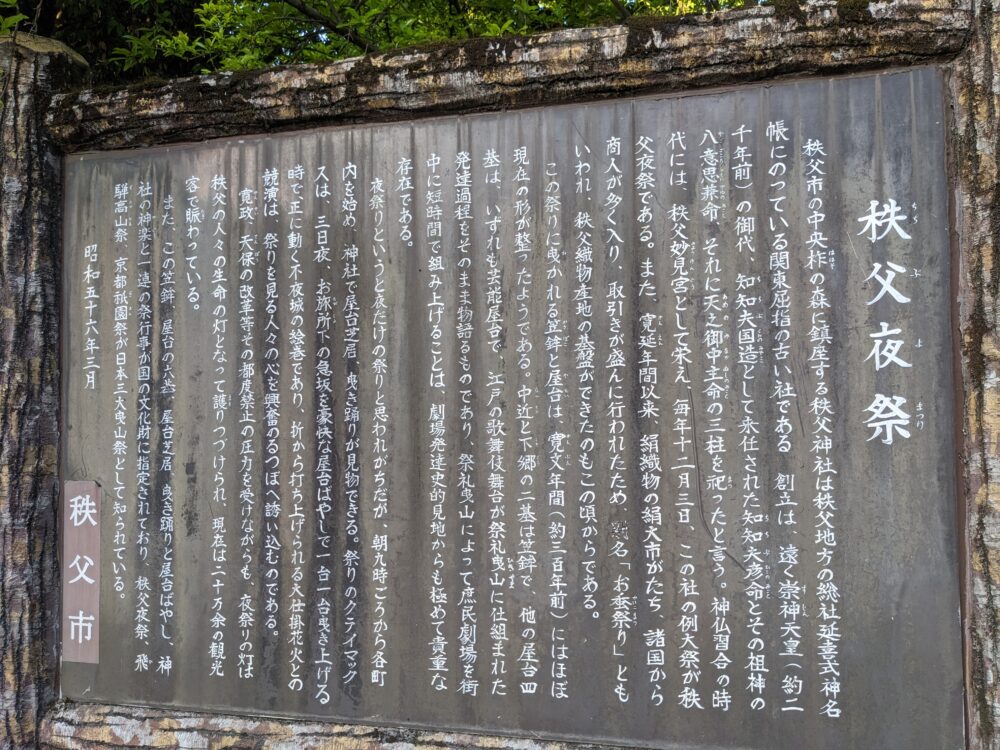 秩父夜祭
ちちぶよまつり
秩父市の中央柞の森に鎮座する秩父神社は秩父地方の総社延喜式神名
帳にのっている関東屈指の古い社である 創立は、遠く崇神天皇(約二
千年前)の御代、知知夫国造として来任された知知夫彦命とその祖神の
八意思兼命、それに天之御中主命の三柱を祀ったと言う。神仏習合の時
代には、秩父妙見宮として栄え、毎年十二月三日、この社の例大祭が秩
父夜祭である。また、寛延年間以来、絹織物の絹大市がたち、諸国から
商人が多く入り、取引が盛んに行われたため、別名「お蚕祭り」とも
いわれ、秩父織物産地の基盤ができたのもこの頃からである。
この祭りに曳かれる笠鉾と屋台は、寛文年間(約三百年前)にはほぼ
現在の形が整ったようである。中近と下郷の二基は笠鉾で、他の屋台四
基は、いずれも芸能屋台で、江戸の歌舞伎舞台が祭礼曳山に仕組まれた
発達過程をそのまま物語るものであり、祭礼曳山によって庶民劇場を街
中に短時間で組み上げることは、劇場発達史的見地からも極めて貴重な
存在である。
夜祭りというと夜だけの祭りと思われがちだが、朝九時ごろから各町
内を始め、神社で屋台芝居、曳き踊りが見物できる。祭りのクライマック
スは、三日夜、お旅所下の急坂を豪快な屋台ばやしで一台一台曳き上げる
時で正に動く不夜城の絵巻であり、折から打ち上げられる大仕掛花火との
競演は、祭りを見る人々の心を興奮のるつぼへ誘い込むのである。
寛政、天保の改革等その都度禁止の圧力を受けながらも、夜祭りの灯は
秩父の人々の生命の灯となって護りつづけられ、現在は二十万余の観光
客で賑わっている。
また、この笠鉾、屋台の六基、屋台芝居、曳き踊りと屋台ばやし、神
社の神楽と一連の祭行事が国の文化財に指定されており、秩父夜祭、飛
騨高山祭、京都祇園祭が日本三大曳山祭として知られている。
昭和五十六年三月
秩父市